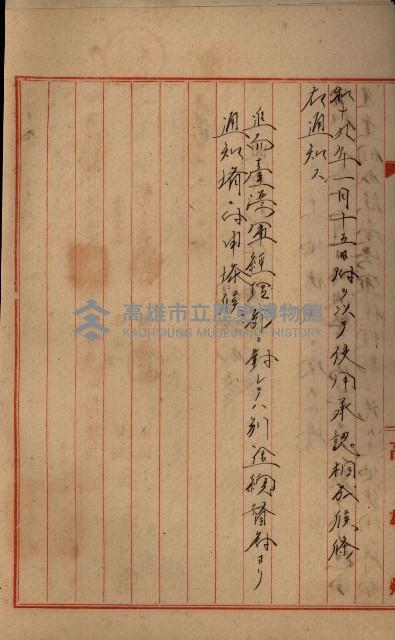 和十九年一月十五日附ヲ以テ使用承認相成候條
右通知ス
追而臺灣軍經理部ニ對シテハ別途總督府ヨリ
通知濟ニ付申添候
高雄州
高雄市立歷史博物館
KAOHSIUNG MUSEUM OF HISTORY